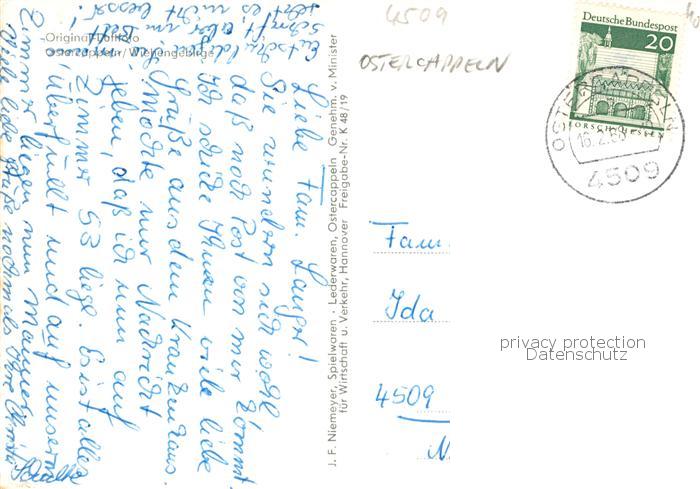 4509
OSTERCAPPELN
Original-Luftfoto
Ostercappeln/Wiehengebirge
Liebe Fam. Langer!
Sie wundern sich wohl
daß noch Post von mir kommt.
Ich schicke Ihnen viele liebe
Grüße aus dem Krankenhaus.
Möchte nur Nachricht
geben, daß ich nun auf
Zimmer 53 liege. Es ist alles
überfüllt und auf unserm
Zimmer liegen nun
viele liebe Grüße nochmals Ihre
Entschuld
Schrift aber im Bett
geht es nicht besser!
J. F. Niemeyer, Spielwaren · Lederwaren, Ostercappeln Genehm. v. Minister
für Wirtschaft u. Verkehr, Hannover Freigabe-Nr. K 48/19
Deutsche Bundespost
20
LORSCH/HESSEN
OSTERCAPPELN
4509
Fam.
Ida
4509
privacy protection
Datenschutz